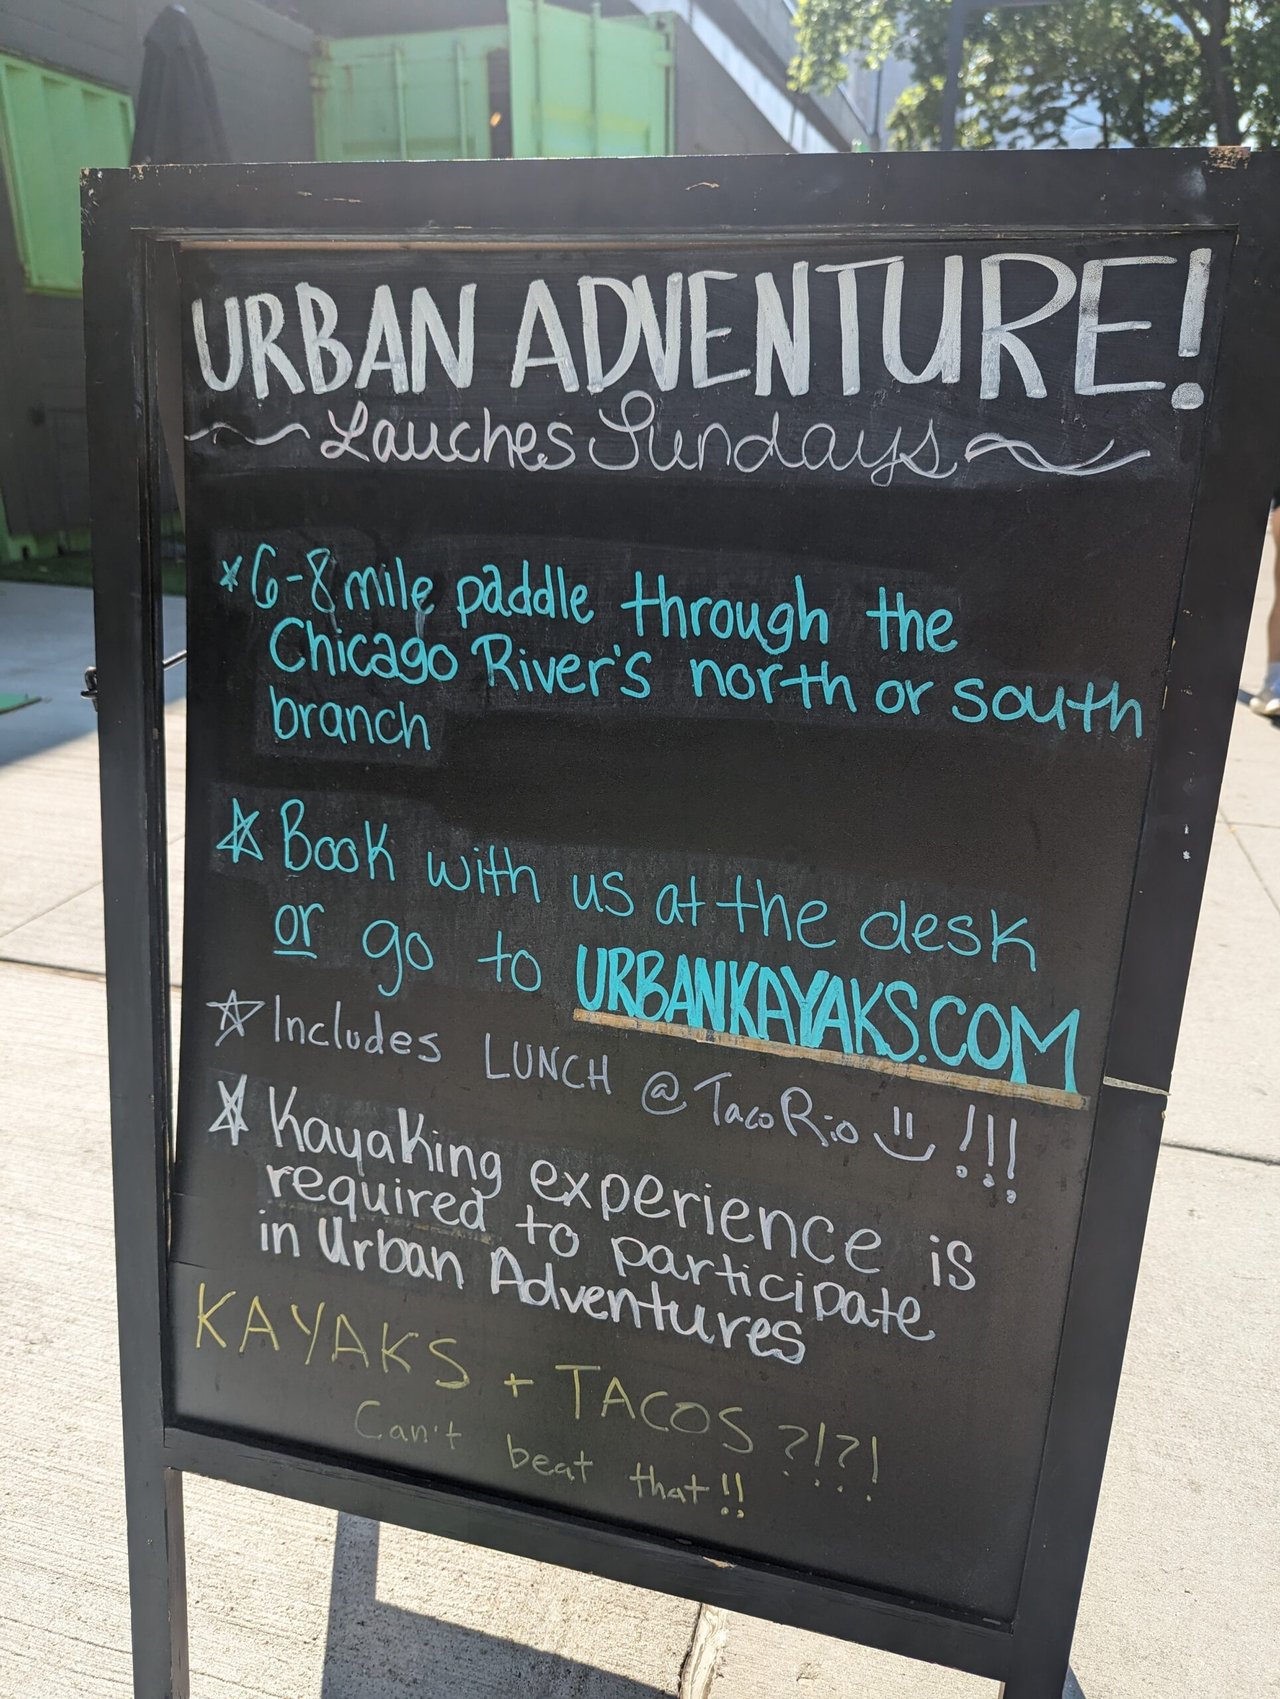 URBAN ADVENTURE!
Lauches Sundays
6-8 mile paddle through the
Chicago River's north or south
branch
Book with us at the desk
or go to URBANKAYAKS.COM
Includes LUNCH @ Taco Rio !!!
Kayaking experience is
required to participate
in Urban Adventures
KAYAKS + TACOS ?!?!
Can't beat that!!